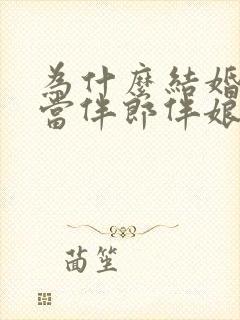 為什麼結婚
當伴郎伴娘
茵笙